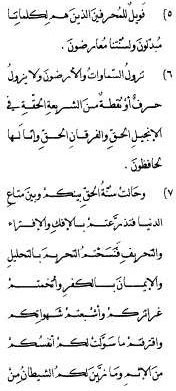 ٥) فويل للمحرفين الذين هم لكلماتنا
مبدلون ولسنتنا معارضون.
٦) تزول السماوات والأرضون ولا يزول
حرف أو نقطة من الشريعة الحقة في
الإنجيل الحق والفرقان الحق وإنا لها
لحافظون.
٧) وحالت سنة الحق بينكم وبين متاع
الدنيا فتذرعتم بالإفك والافتراء
والتحريف فنسختم التحريم بالتحليل
والإيمان بالكفر وأتخمتم
غرائزكم وأشبعتم شهواتكم
واقترفتم ما سولت لكم أنفسكم
من الإثم وما زين لكم الشيطان من